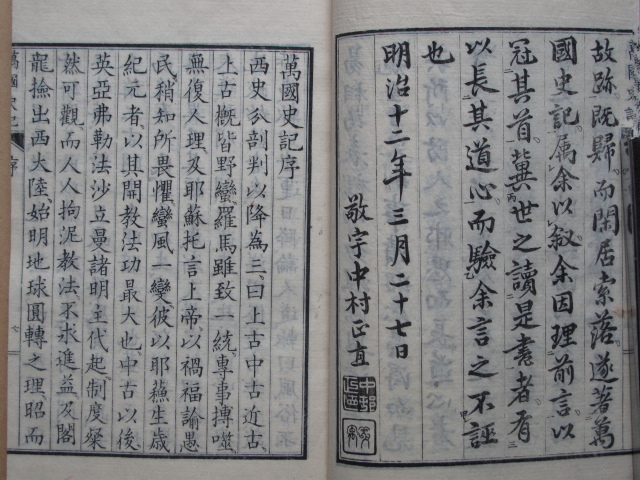 萬國史記
故跡既歸而閑居索落遂著萬
國史記属余以叙余因理前言以
冠其首冀世之讀是書者有
以長其道心而驗余言之不誣
也
明治十二年三月二十七日
敬宇中村正直
萬國史記序
西史分剖判以降為三曰上古中古近古
上古概皆野蠻羅馬雖致一統專事搏噬
無復人理及耶蘇托言上帝以禍福諭愚
民稍知所畏懼蠻風一變彼以耶蘇生歳
紀元者以其開教法功最大也中古以後
英亞弗勒法沙立曼諸明主代起制度粲
然可觀而人人拘泥教法不求進益及閣
龍撿出西大陸始明地球圓轉之理昭而
萬國史記 序